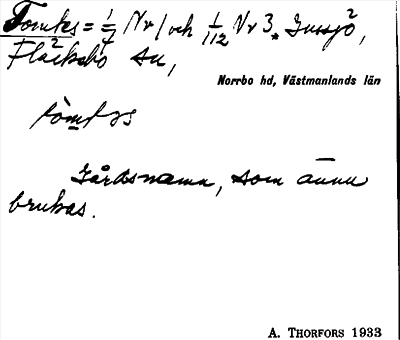 Tomtes = 1/4 Nr 1 och 1/112 Nr 3. Gussjö²,
Fläckebo² sn,
Norrbo hd, Västmanlands län
tòmtas
Gårdsnamn, som ännu
brukas.
A. THORFORS 1933